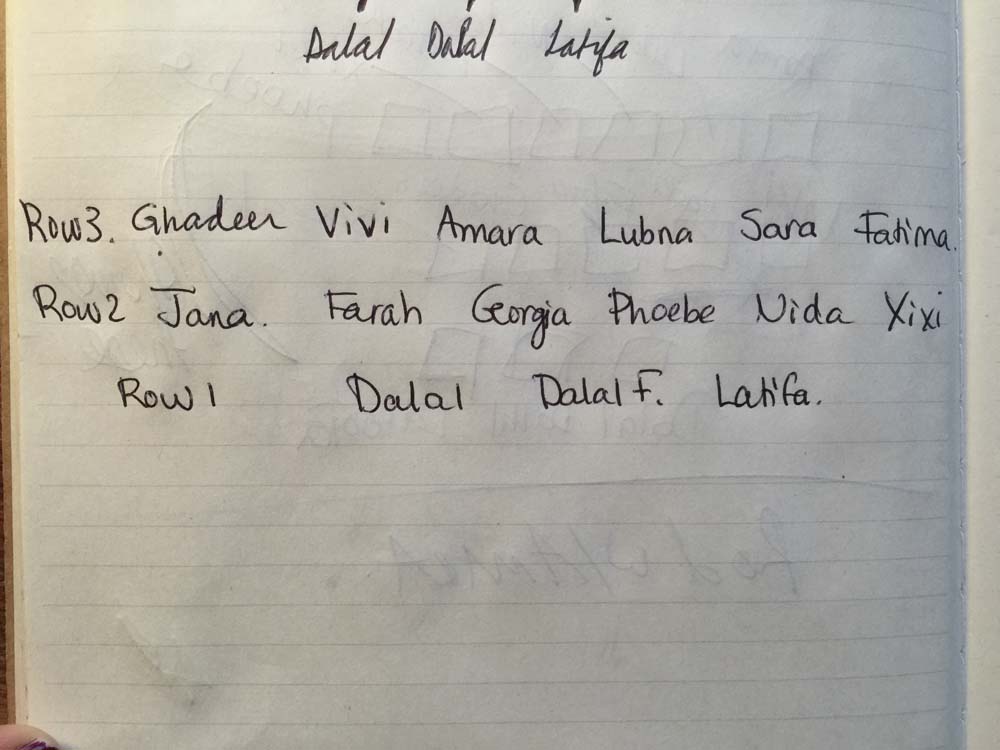 Dalal Dalal Latifa
Row3. Ghadeer Vivi Amara Lubna Sara Fatima.
Row2 Jana. Farah Georgia Phoebe Nida Xixi
Row 1 Dalal Dalal F. Latifa.